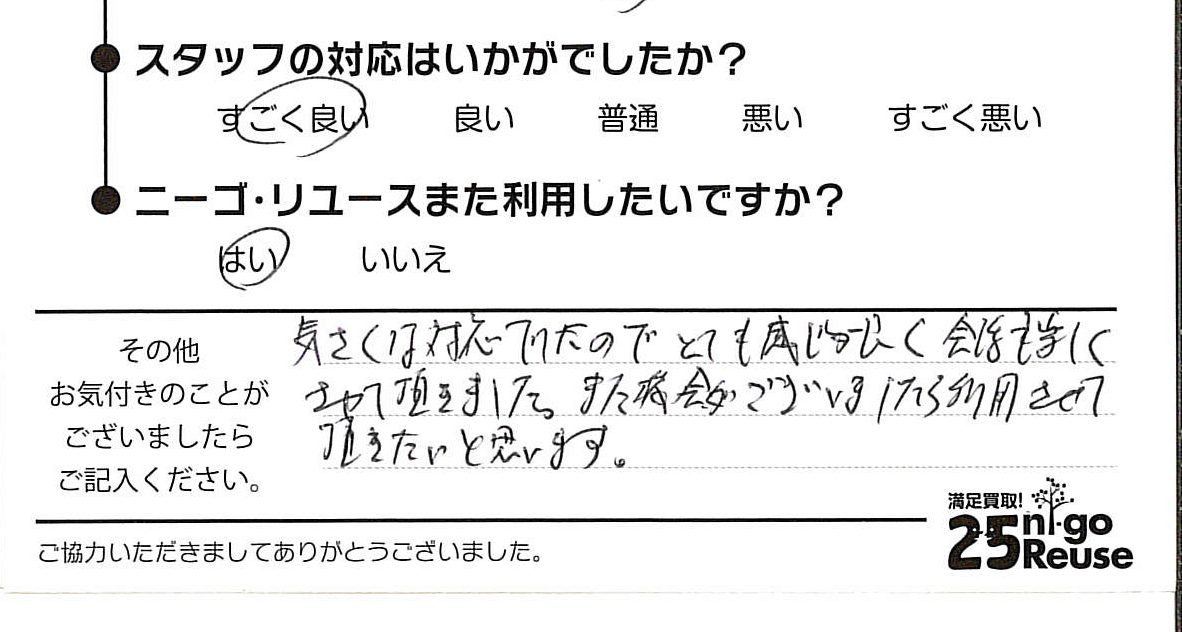 スタッフの対応はいかがでしたか？
すごく良い 良い 普通 悪い すごく悪い
ニーゴ・リユースまた利用したいですか？
はい いいえ
その他
お気付きのことが
ございましたら
ご記入ください。
気さくな対応でしたので とても感じが良く 会話も楽しく
させて頂きました。また機会がございましたら利用させて
頂きたいと思います。
ご協力いただきましてありがとうございました。
満足買取!
25 ni-go
Reuse